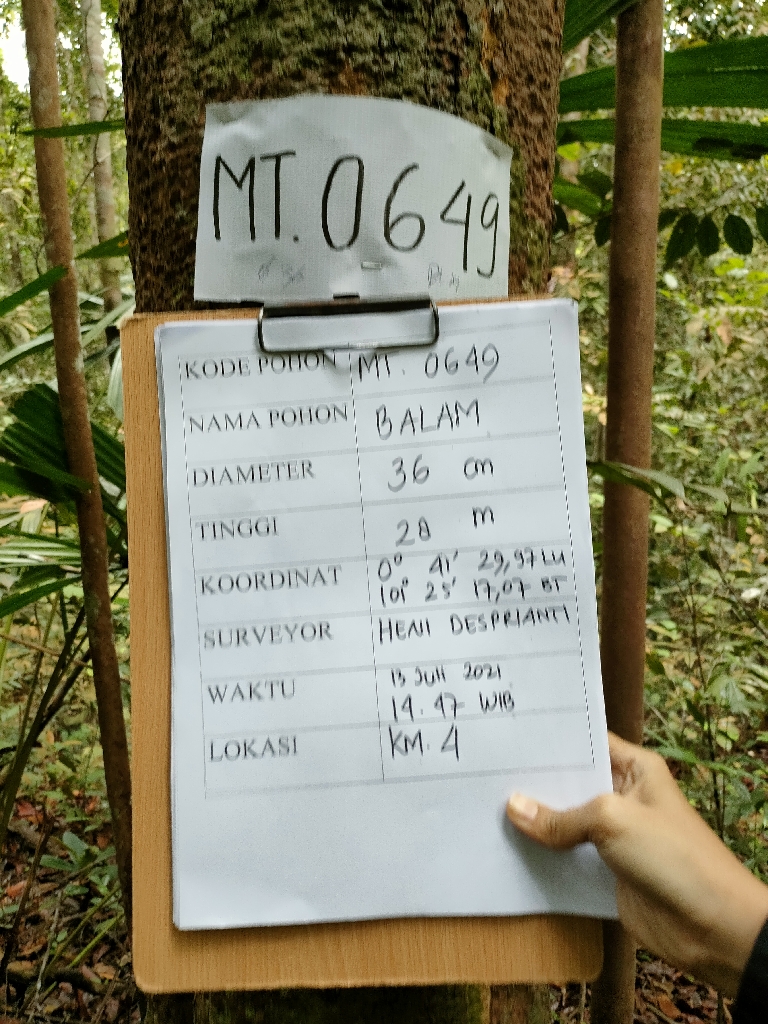 MT. 0649
KODE POHON MT. 0649
NAMA POHON BALAM
DIAMETER 36 cm
TINGGI 28 m
KOORDINAT 0° 41' 29,97 LU
101° 25' 17,07 BT
SURVEYOR HENI DESPRIANTI
WAKTU 13 Juli 2021
14.47 WIB
LOKASI KM. 4